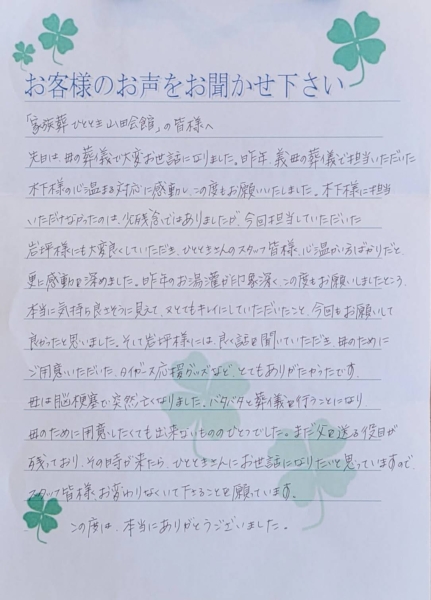 お客様のお声をお聞かせ下さい
「家族葬ひととき山田会館」の皆様へ
先日は、母の葬儀で大変お世話になりました。昨年、義母の葬儀で担当いただいた
木下様の心温まる対応に感動し、この度もお願いいたしました。木下様に担当
いただけなかったのは、少々残念ではありましたが、今回担当していただいた
岩坪様にも大変良くしていただき、ひとときさんのスタッフ皆様、心温かい方ばかりだと
更に感動を深めました。昨年のお湯灌が印象深く、この度もお願いしましたところ、
本当に気持ち良さそうに見えて、とてもキレイにしていただいたこと、今回もお願いして
良かったと思いました。そして岩坪様には、良く話を聞いていただき、母のために
ご用意いただいた、タイガース応援グッズなど、とてもありがたかったです。
母は脳梗塞で突然亡くなりました。バタバタと葬儀を行うことになり
母のために用意したくても出来ないもののひとつでした。まだ父を送る役目が
残っており、その時が来たら、ひとときさんにお世話になりたいと思っていますので
スタッフ皆様、お変わりなくいて下さることを願っています。
この度は、本当にありがとうございました。